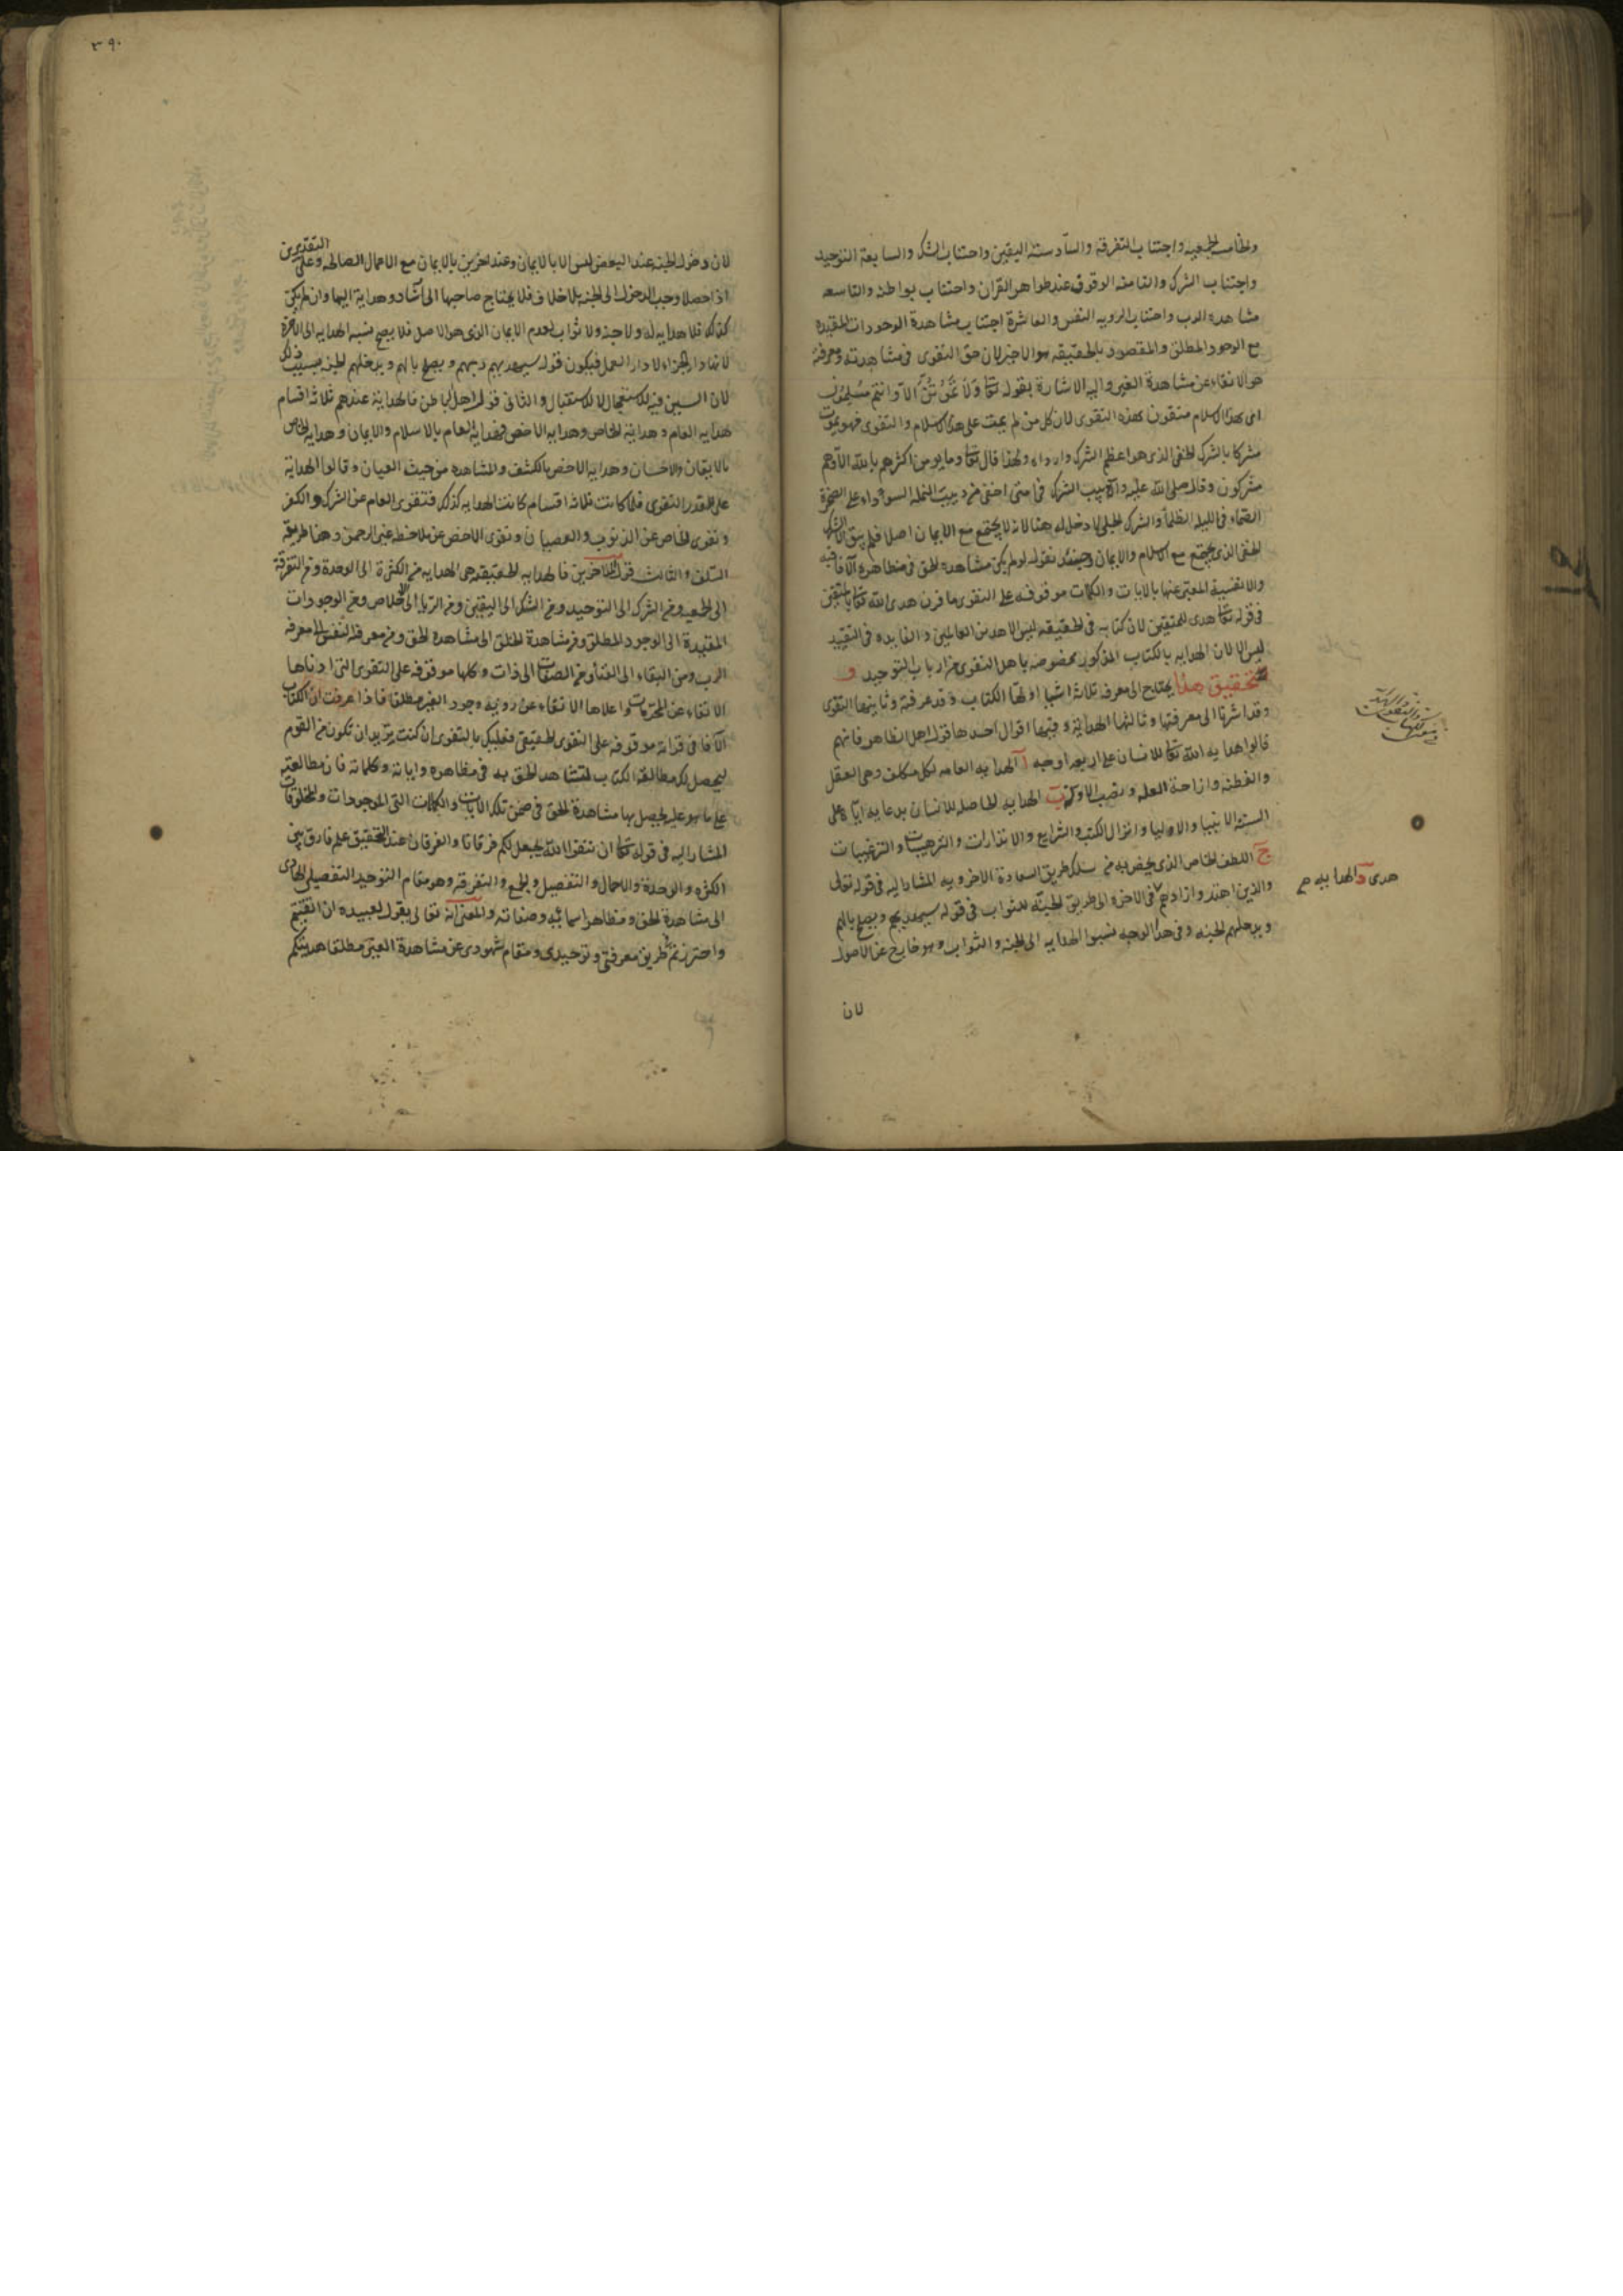 والخامسة الجمعيه واجتناب التفرقة والسادسته اليقين واجتناب الشك والسابعة التوحيد
واجتناب الشرك والثامنه الوقوف عند ظواهر القران واجتناب بواطنه والتاسعه
مشاهده الرب واجتناب الرويه النفس والعاشرة اجتناب مشاهدة الوجودات المقيده
مع الوجود المطلق والمقصود بالحقيقه هو الاخير لان حق التقوى فى مشاهدته ومعرفته
هو الاتقاء عن مشاهدة الغير واليه الاشارة بقوله تعا ولا تموتن الا وانتم مسلمون
اى بهذا الاسلام متقون بهذه التقوى لان كل من لم يمت على هذا الاسلام والتقوى فهو يموت
مشركا بالشرك الخفى الذى هو اعظم الشرك وارداه ولهذا قال تعا وما يومن اكثرهم بالله الا وهم
مشركون وقال صلى الله عليه واله دبيب الشرك فى امتى اخفى من دبيب النمله السوداء على الصخرة
الصماء فى الليله الظلماء والشرك الجلى لا دخل له هنا لانه لا يجتمع مع الايمان اصلا فلم يبق الا الشرك
الخفى الذى يجتمع مع الاسلام والايمان وحينئذ نقول لو لم يكن مشاهده الحق فى مظاهره الآفاقيه
والانفسية المعبر عنها بالايات والكلمات موقوفه على التقوى ما قرن هدى الله تعا بالمتقين
فى قوله تعا هدى للمتقين لان كتابه فى الحقيقه ليس الا هدى العالمين والفايده فى التقييد
ليس الا لان الهدايه بالكتاب المذكور مخصوصه باهل التقوى من ارباب التوحيد و
تحقيق هذا يحتاج الى معرفه ثلاثه اشيا اولها الكتاب وقد عرفته وثانيها التقوى
وقد اشرنا الى معرفتها وثالثها الهداية وفيها اقوال احدها قول اهل الظاهر فانهم
قالوا هدايه الله تعا للانسان على اربعه اوجه آ الهدايه العامه لكل مكلف وهى العقل
والفطنه وازاحة العله ونصب الادله ب الهدايه الحاصله للانسان بدعايه اياه على
السنه الانبيا والاوليا وانزال الكتب والشرايع والانذارات والترهيبات والترغيبات
ج اللطف الخاص الذى يخص به من سلك طريق السعادة الاخرويه المشار اليه فى قوله تعالى
والذين اهتدوا زادهم هدى د الهدايه فى الاخره الى طريق الجنه للثواب فى قوله سيهديهم ويصلح بالهم
ويدخلهم الجنه وفى هذا الوجه نسبوا الهدايه الى الجنه والثواب وهو خارج عن الاصول
لان
٣٩٠
لان دخول الجنه عند البعض ليس الا بالايمان وعند اخرين بالايمان مع الاعمال الصالحه وعلى التقديرين
اذا حصلا وجب الدخول الى الجنه بلا خلاف فلا يحتاج صاحبها الى ارشاد وهداية اليها وان لم يكن
كذلك فلا هدايه له ولا جنه ولا ثواب لعدم الايمان الذى هو الاصل فلا يصح نسبه الهدايه الى الاخرة
لانها دار الجزاء لا دار العمل فيكون قوله سيهديهم ربهم ويصلح بالهم ويدخلهم الجنه بسبب ذلك
لان السين فيه للاستعجال لا للاستقبال والثانى قول اهل الباطن فالهداية عندهم ثلاثه اقسام
هدايه العام وهداية الخاص وهدايه الاخص فهداية العام بالاسلام والايمان وهدايه الخاص
بالايقان والاحسان وهدايه الاخص بالكشف والمشاهده من حيث العيان وقالوا الهداية
على قدر التقوى فلما كانت ثلاثه اقسام كانت الهدايه كذلك فتقوى العام عن الشرك والكفر
وتقوى الخاص عن الذنوب والعصيان وتقوى الاخص عن ملاحظه غير الرحمن وهذا طريقه
السلف والثالث قول المتاخرين فالهدايه الحقيقيه هى الهدايه من الكثرة الى الوحدة ومن التفرقة
الى الجمعيه ومن الشرك الى التوحيد ومن الشك الى اليقين ومن الريا الى الاخلاص ومن الوجودات
المقيدة الى الوجود المطلق ومن مشاهدة الخلق الى مشاهده الحق ومن معرفه النفس الى معرفه
الرب ومن البقاء الى الفناء ومن الصفات الى الذات وكلها موقوفه على التقوى التى ادناها
الاتقاء عن المحرمات واعلاها الاتقاء عن رويه وجود الغير مطلقا فاذا عرفت ان الكتاب
الآفاقى قراته موقوفه على التقوى الحقيقى فعليك بالتقوى ان كنت تريد ان تكون من القوم
ليحصل لك مطالعة الكتاب لتشاهد الحق به فى مظاهره واياته وكلماته فان مطالعته
على ما هو عليه يحصل بها مشاهدة الحق فى ضمن تلك الايات والكلمات التى الموجودات والمخلوقات
المشار اليه فى قوله تعا ان تتقوا الله يجعل لكم فرقانا والفرقان عند التحقيق علم فارق بين
الكثره والوحدة والاجمال والتفصيل والجمع والتفرقة وهو مقام التوحيد التفصيلى الهادى
الى مشاهدة الحق ومظاهر اسمائه وصفاته والمعنى انه تعالى يقول لعبيده ان اتقيتم
واحترزتم طريق معرفتى وتوحيدى ومقام شهودى عن مشاهدة الغير مطلقا هديتكم